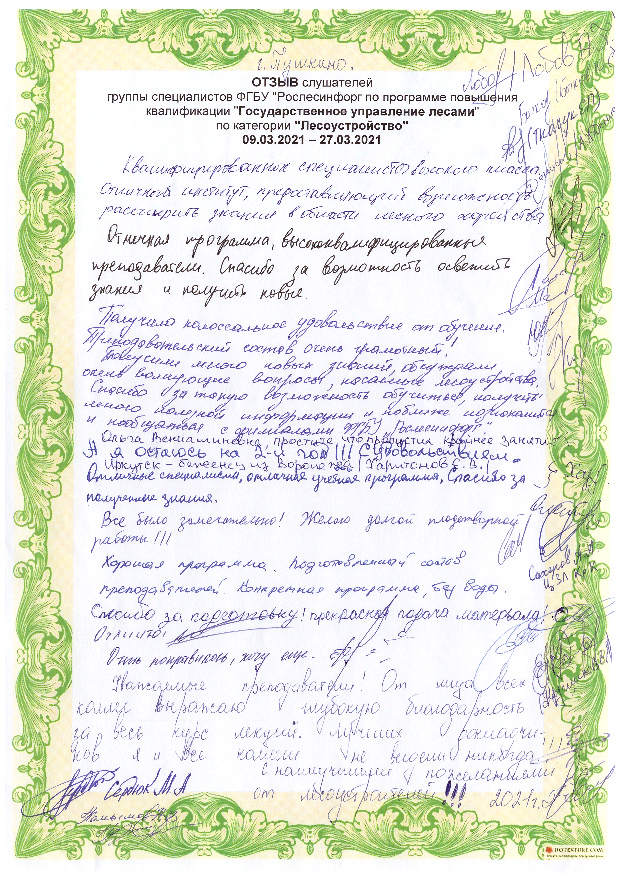 г. Пушкино.
ОТЗЫВ слушателей
группы специалистов ФГБУ "Рослесинфорг по программе повышения
квалификации "Государственное управление лесами"
по категории "Лесоустройство"
09.03.2021 – 27.03.2021
Квалифицированных специалистов высокого класса
Отличный институт, предоставляющий возможность
расширить знания в области лесного хозяйства
Отличная программа, высококвалифицированные
преподаватели. Спасибо за возможность освежить
знания и получить новые.
Получила колоссальное удовольствие от обучения.
Преподавательский состав очень грамотный!
много новых знаний, обсуждали
очень волнующие вопросы, касаемые лесоустройства.
Спасибо за такую возможность обучиться, получить
много полезной информации и поближе познакомиться
и пообщаться с филиалами ФГБУ "Рослесинфорг"
Ольга Вениаминовна, простите что пропустил крайнее занятие
А я остаюсь на 2-й год!!! С удовольствием
Отличные специалисты, отличная учебная программа, Спасибо за
полученные знания.
Все было замечательно! Желаю долгой плодотворной
работы!!!
Хорошая программа. Подготовленный состав
преподавателей. Конкретная программа, без воды.
Спасибо за подготовку! прекрасная подача материала!
Отлично!
Очень понравилось, хочу еще.
Уважаемые преподаватели! От лица всех
коллег выражаю глубокую благодарность
за весь курс лекций. Лучших
ков я и все коллеги не видели никогда!!!
С наилучшими пожеланиями
от лесоустроителей!!! 2021 г.
Сердюк М.А